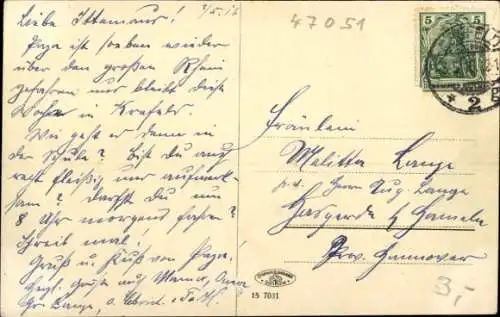 Liebe Ittemaus!
Papa ist soeben wieder
über den großen Rhein
gefahren und bleibt diese
Woche in Krefeld.
Wie geht es denn in
der Schule? Bist Du auch
recht fleißig und aufmerk-
sam? Darfst Du um
8 Uhr morgens fahren?
Schreib mal!
Gruß u. Kuß von Papa.
Grüße auf Mama,
47051
5 5
2
Fräulein
Melitta Lange
Herrn Aug. Lange
b/ Hameln
Prov. Hannover
15 7031
3,-